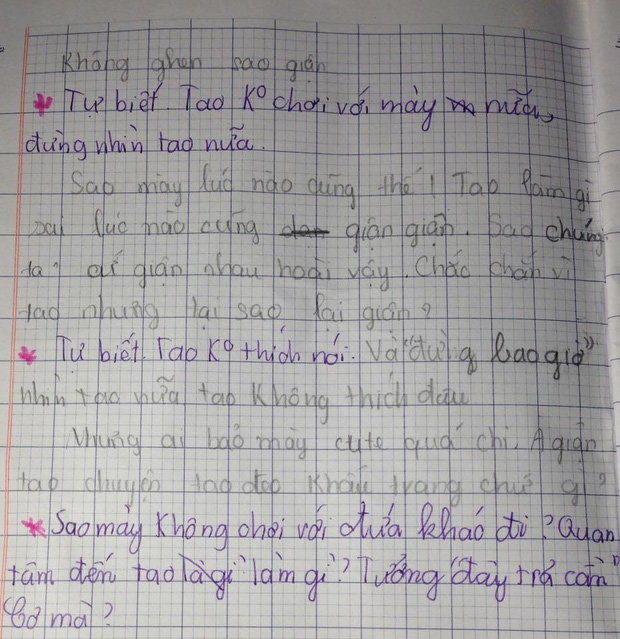 Không ghen sao giận
* Tự biết. Tao Kº chơi với mày nữa,
đừng nhìn tao nữa.
Sao mày lúc nào cũng thế! Tao làm gì
sai lúc nào cũng giận giận. Sao chúng
ta cứ giận nhau hoài vậy. Chắc chắn vì
tao nhưng tại sao lại giận?
* Tự biết. Tao Kº thích nói. Và "đừng bao giờ"
nhìn tao nữa tao không thích đâu
Nhưng ai bảo mày cute quá chi. A giận
tao chuyện tao đeo khẩu trang chứ gì?
* Sao mày không chơi với đứa khác đi? Quan
tâm đến tao là gì làm gì? Tưởng đây trả cần
cơ mà?